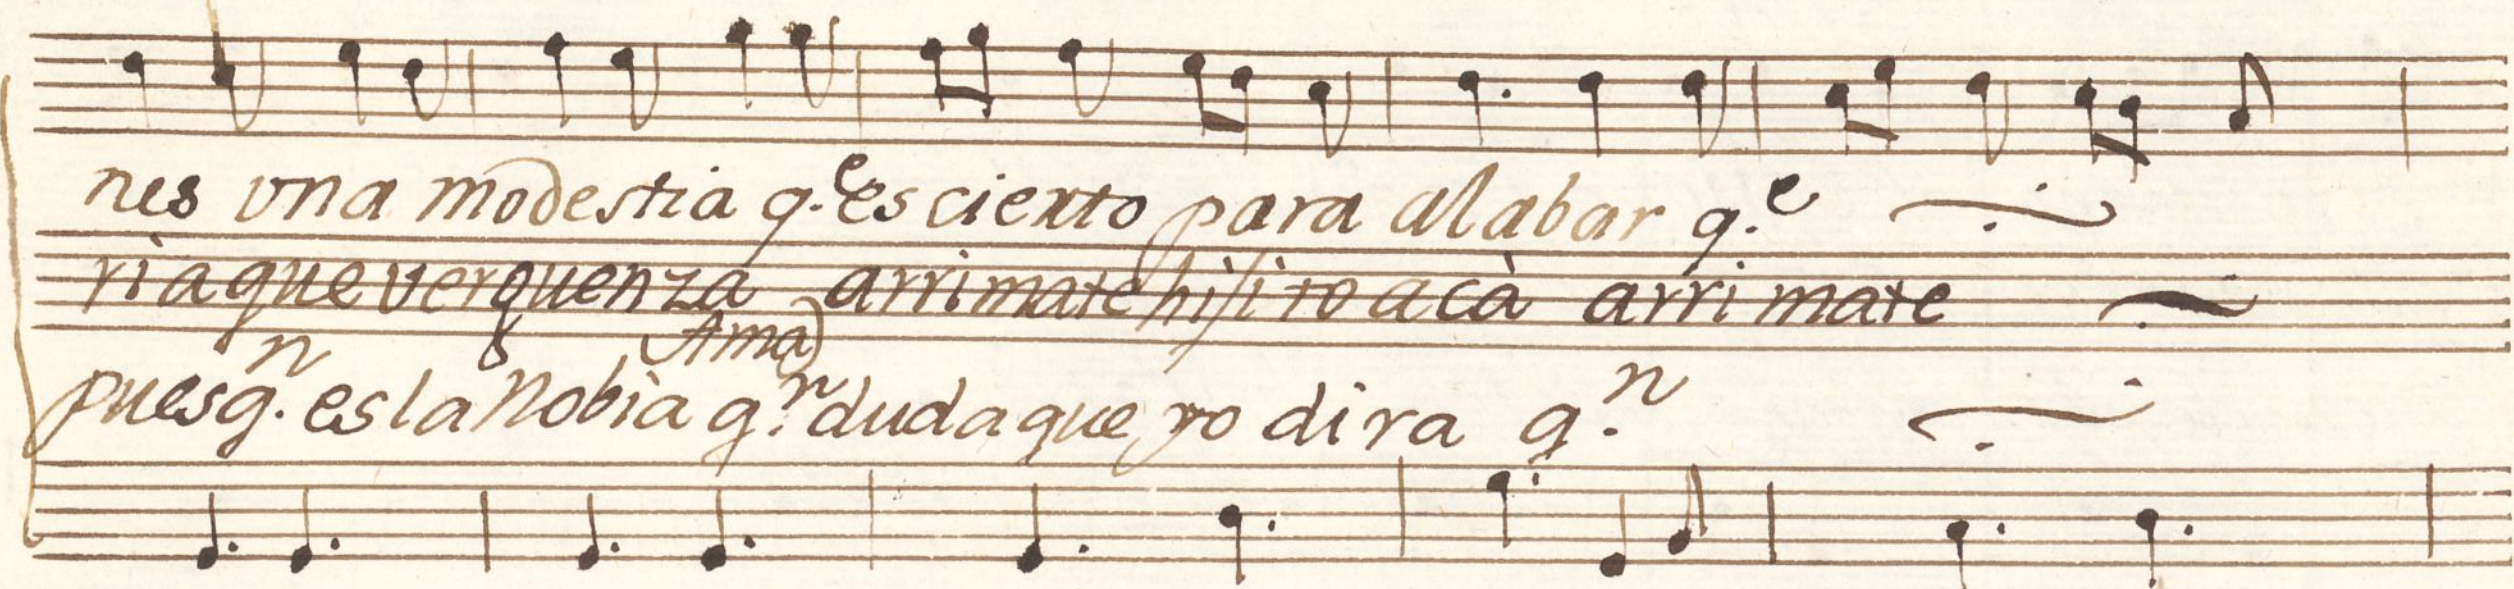 nes vna modestia q.e es cierto para alabar q.e
ria que verguenza arrimate hijito acà arrimate
Ama)
pues q.n es la Nobia q.n duda que yo dira q.n